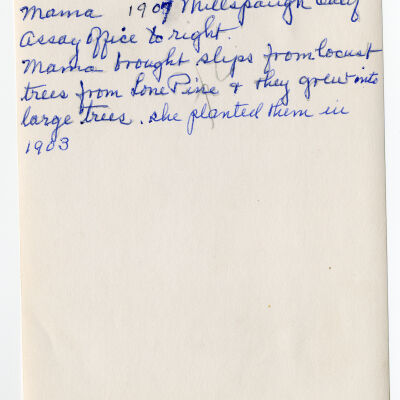 Mama 1907 Millspaugh Calif
Assay Office to right.
Mama brought slips from locust
trees from Lone Pine & they grew into
large trees. she planted them in
1903